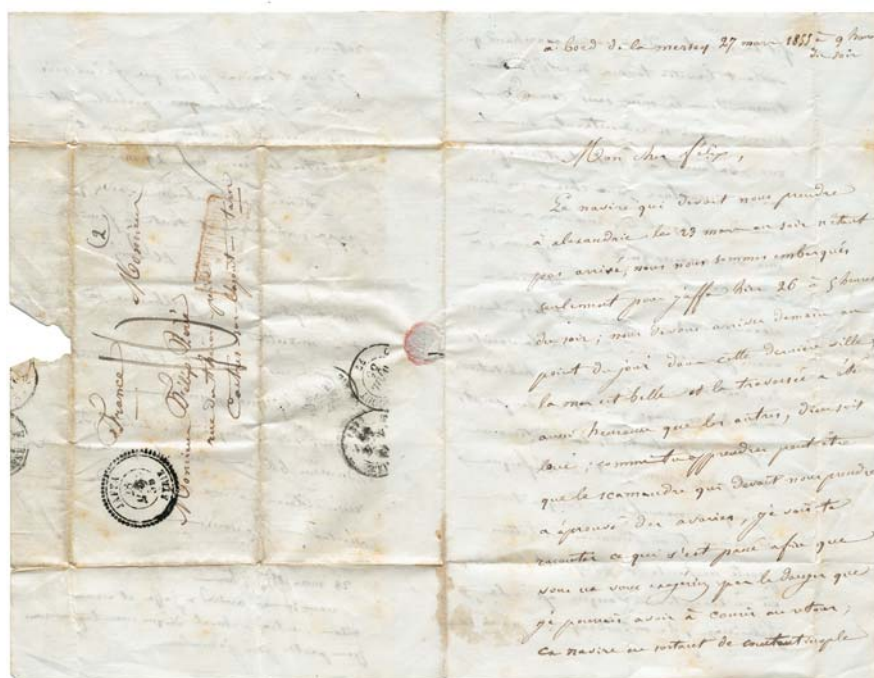 à bord de la mersey 27 mars 1855 à 9 heures
du soir
Mon cher félix,
Le navire qui devait nous prendre
à alexandrie le 23 mars au soir n'étant
pas arrivé, nous nous sommes embarqués
seulement pour jaffa hier 26 à 5 heures
du soir; nous devons arriver demain au
point du jour dans cette dernière ville,
la mer est belle et la traversée a été
aussi heureuse que les autres, dieu soit
loué; comme tu apprendras peut être
que le scamandre qui devait nous prendre
a éprouvé des avaries, je vais te
raconter ce qui s'est passé afin que
vous ne vous exagériez pas le danger que
je pouvais avoir à courir au retour,
ce navire en sortant de constantinople
(2
Monsieur
Monsieur félix
rue du
Castres
tarn
France
JAFFA